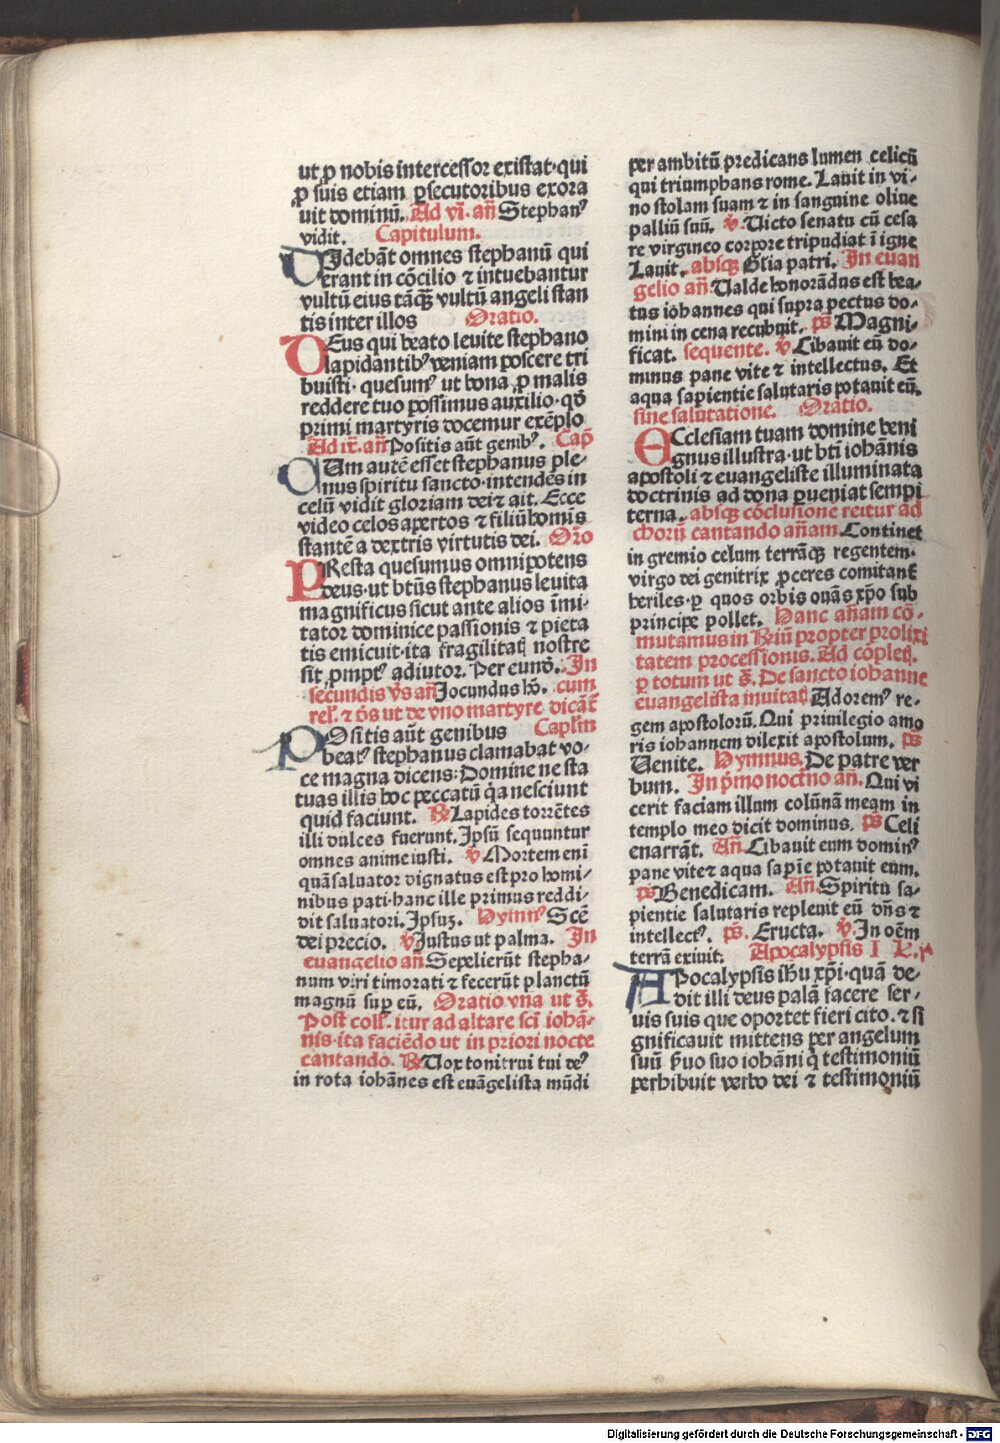 ut ꝓ nobis intercessor existat·qui
ꝓ suis etiam ꝑsecutoribus exora
uit dominū. Ad vi. añ Stephanꝰ
vidit. Capitulum.
VIdebāt omnes stephanū qui
erant in cōcilio ⁊ intuebantur
vultū eius tāꝙ̄ vultū angeli stan
tis inter illos Oratio.
DEus qui beato leuite stephano
lapidantibꝰ veniam poscere tri
buisti· quesumꝰ ut bona ꝓ malis
reddere tuo possimus auxilio·qd̄
primi martyris docemur exēplo
Ad ix. añ Positis aūt genibꝰ. Capł
CUm autē esset stephanus ple-
nus spiritu sancto·intendēs in
celū vidit gloriam dei ⁊ ait. Ecce
video celos apertos ⁊ filiū hoīs
stantē a dextris virtutis dei. Oro
PResta quesumus omnipotens
deus·ut btūs stephanus leuita
magnificus sicut ante alios imi-
tator dominice passionis ⁊ pieta
tis emicuit·ita fragilitati nostre
sit ꝓmptꝰ adiutor. Per eundē. In
secundis vs̄ añ Jocundus hō. cum
rel. ⁊ ōs ut de vno martyre dicāt̄
POsitis aūt genibus Capłm
beatꝰ stephanus clamabat vo-
ce magna dicens: Domine ne sta
tuas illis hoc peccatū qa nesciunt
quid faciunt. R̄ Lapides torrētes
illi dulces fuerunt. Ipsū sequuntur
omnes anime iusti. v̄ Mortem enī
quā saluator dignatus est pro homi-
nibus pati·hanc ille primus reddi-
dit saluatori. Ipsuꝫ. Hymnꝰ Scē
dei precio. v̄ Justus ut palma. In
euangelio añ Sepelierūt stepha-
num viri timorati ⁊ fecerūt planctū
magnū suꝑ eū. Oratio vna ut s̄.
Post coll. itur ad altare sc̄i iohā-
nis·ita faciēdo ut in priori nocte
cantando. R̄ Vox tonitrui tui deꝰ
in rota iohānes est euāgelista mūdi
per ambitū predicans lumen celicū
qui triumphans rome. Lauit in vi-
no stolam suam ⁊ in sanguine oliue
palliū suū. v̄. Victo senatu cū cesa
re virgineo corpore tripudiat ī igne
Lauit. absqꝫ Glia patri. In euan
gelio añ Valde honorādus est bea-
tus iohannes qui supra pectus do-
mini in cena recubuit. ps̄ Magni-
ficat. sequente. v̄ Cibauit eū do-
minus pane vite ⁊ intellectus. Et
aqua sapientie salutaris potauit eū.
sine salutatione. Oratio.
ECclesiam tuam domine beni
gnus illustra·ut bti iohānis
apostoli ⁊ euangeliste illuminata
doctrinis ad dona ꝑueniat sempi
terna. absqꝫ cōclusione reitur ad
chorū cantando añam Continet
in gremio celum terrāqꝫ regentem·
virgo dei genitrix ꝓceres comitant̄
heriles·ꝑ quos orbis ouās xp̄o sub
principe pollet. Hanc añam cō-
mutamus in R̄iū propter prolixi
tatem processionis. Ad cōplet.
ꝑ totum ut s̄. De sancto iohanne
euangelista inuitat̄ Adoremꝰ re-
gem apostolorū. Qui priuilegio amo
ris iohannem dilexit apostolum. ps̄
Uenite. Hymnus. De patre ver
bum. In pͥmo noctno añ. Qui vi
cerit faciam illum colūnā meam in
templo meo dicit dominus. ps̄ Celi
enarrāt. Añ. Cibauit eum dominꝰ
pane vite ⁊ aqua sapīe potauit eum.
ps̄ Benedicam. Añ. Spiritu sa-
pientie salutaris repleuit eū dn̄s ⁊
intellectꝰ. ps̄. Eructa. v̄. In oēm
terrā exiuit. Apocalypsis I L. j
APocalypsis ihū xp̄i·quā de-
dit illi deus palā facere ser-
uis suis que oportet fieri cito. ⁊ si
gnificauit mittens per angelum
suū ẜuo suo iohāni qͥ testimoniū
perhibuit verbo dei ⁊ testimoniū
Digitalisierung gefördert durch die Deutsche Forschungsgemeinschaft - DFG